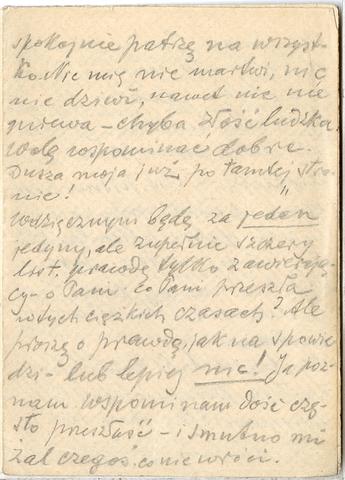 spokojnie patrzę na wszyst-
ko. Nic mię nie martwi, nic
nie dziwi, nawet nic nie
gniewa – chyba złość ludzka.
Wolę wspominać dobre.
Dusza moja już po tamtej stro-
nie!
Wdzięcznym będę za jeden
jedyny, ale zupełnie szczery
list. prawdę tylko zawierają-
cy – o Pani. co Pani przeszła
w tych ciężkich czasach? Ale
proszę o prawdę, jak na spowie
dzi – lub lepiej nic! Ja
wspominam dość czę-
sto przeszłość – i smutno mi
żal czegoś, co nie wróci.